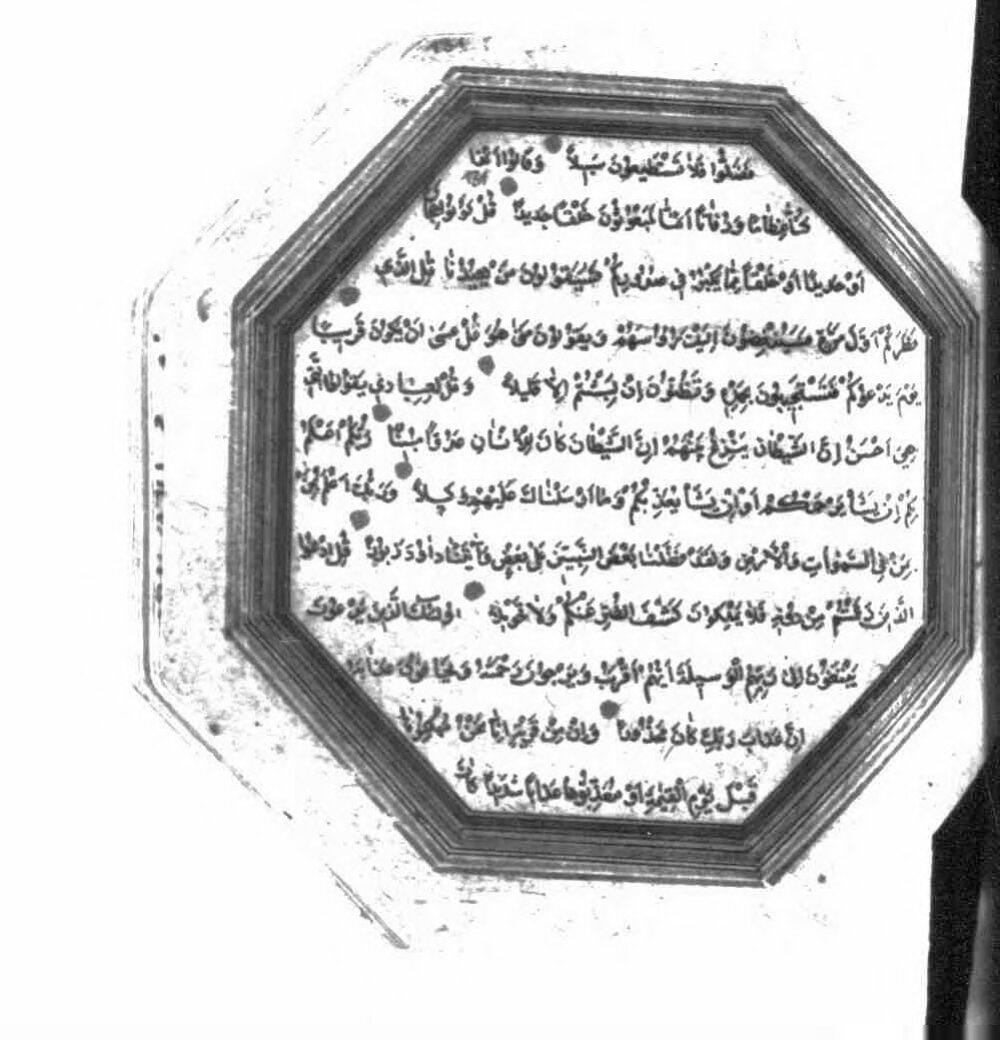 فَضَلُّوا فَلَا يَسْتَطِيعُونَ سَبِيلًا وَقَالُوا أَئِذَا
كُنَّا عِظَامًا وَرُفَاتًا أَئِنَّا لَمَبْعُوثُونَ خَلْقًا جَدِيدًا قُلْ كُونُوا حِجَارَةً
أَوْ حَدِيدًا أَوْ خَلْقًا مِمَّا يَكْبُرُ فِي صُدُورِكُمْ فَسَيَقُولُونَ مَنْ يُعِيدُنَا قُلِ الَّذِي
فَطَرَكُمْ أَوَّلَ مَرَّةٍ فَسَيُنْغِضُونَ إِلَيْكَ رُءُوسَهُمْ وَيَقُولُونَ مَتَى هُوَ قُلْ عَسَى أَنْ يَكُونَ قَرِيبًا
يَوْمَ يَدْعُوكُمْ فَتَسْتَجِيبُونَ بِحَمْدِهِ وَتَظُنُّونَ إِنْ لَبِثْتُمْ إِلَّا قَلِيلًا وَقُلْ لِعِبَادِي يَقُولُوا الَّتِي
هِيَ أَحْسَنُ إِنَّ الشَّيْطَانَ يَنْزَغُ بَيْنَهُمْ إِنَّ الشَّيْطَانَ كَانَ لِلْإِنْسَانِ عَدُوًّا مُبِينًا رَبُّكُمْ أَعْلَمُ
بِكُمْ إِنْ يَشَأْ يَرْحَمْكُمْ أَوْ إِنْ يَشَأْ يُعَذِّبْكُمْ وَمَا أَرْسَلْنَاكَ عَلَيْهِمْ وَكِيلًا وَرَبُّكَ أَعْلَمُ بِمَنْ
فِي السَّمَوَاتِ وَالْأَرْضِ وَلَقَدْ فَضَّلْنَا بَعْضَ النَّبِيِّينَ عَلَى بَعْضٍ وَآتَيْنَا دَاوُدَ زَبُورًا قُلِ ادْعُوا
الَّذِينَ زَعَمْتُمْ مِنْ دُونِهِ فَلَا يَمْلِكُونَ كَشْفَ الضُّرِّ عَنْكُمْ وَلَا تَحْوِيلًا أُولَئِكَ الَّذِينَ يَدْعُونَ
يَبْتَغُونَ إِلَى رَبِّهِمُ الْوَسِيلَةَ أَيُّهُمْ أَقْرَبُ وَيَرْجُونَ رَحْمَتَهُ وَيَخَافُونَ عَذَابَهُ
إِنَّ عَذَابَ رَبِّكَ كَانَ مَحْذُورًا وَإِنْ مِنْ قَرْيَةٍ إِلَّا نَحْنُ مُهْلِكُوهَا
قَبْلَ يَوْمِ الْقِيَمَةِ أَوْ مُعَذِّبُوهَا عَذَابًا شَدِيدًا كَانَ